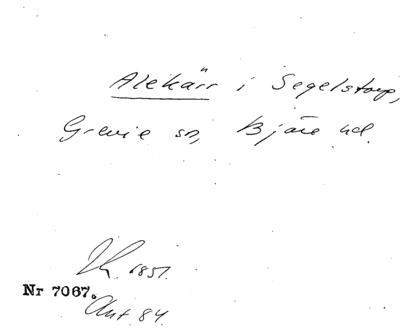 Alekärr i Segelstorp,
Grevie sn, Bjäre hd.
1851.
Nr 7067.
Ant 84.